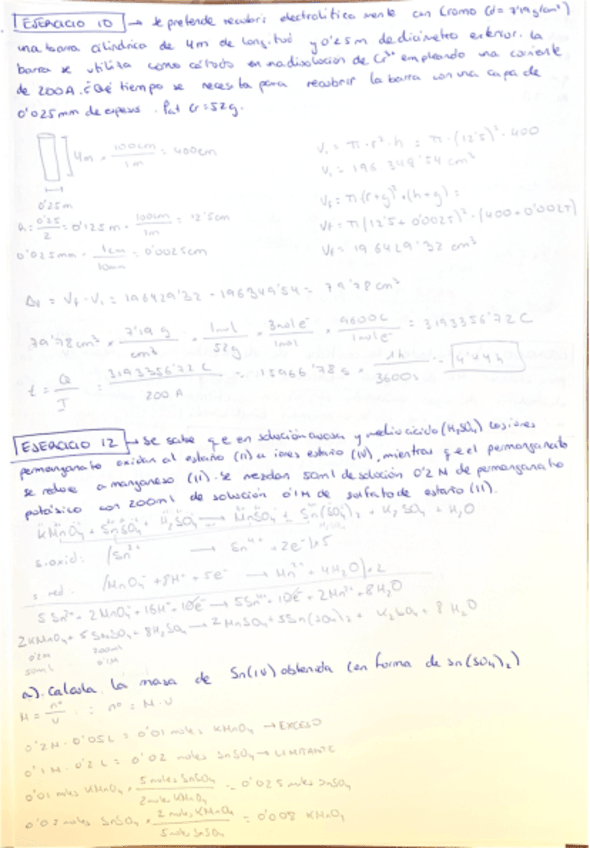 EJERCICIO 10 → Se pretende recubrir electrolíticamente con Cromo (d=7'19g/cm³)
una barra cilíndrica de 4m de longitud y 0'25m de diámetro exterior. La
barra se utiliza como cátodo en una disolución de Cr³⁺ empleando una corriente
de 200A. ¿Qué tiempo se necesita para recubrir la barra con una capa de
0'025mm de espesor. Pat Cr=52g.
4m · 100cm/1m = 400cm
V₁ = π·r²·h = π·(12'5)²·400
V₁ = 196.349'54 cm³
0'25m
R = 0'25/2 = 0'125m · 100cm/1m = 12'5cm
Vf = π(r+g)²·(h+g) =
Vf = π(12'5+0'0025)²·(400+0'0025)
0'025mm · 1cm/10mm = 0'0025cm
Vf = 196429'32 cm³
Δv = Vf - V₁ = 196429'32 - 196349'54 = 79'78cm³
79'78cm³ · 7'19 g/cm³ · 1mol/52g · 3mol e⁻/1mol · 9600C/1mol e⁻ = 3193356'72C
t = Q/I = 3193356'72 C/200 A = 15966'78s · 1h/3600s = 4'44h
EJERCICIO 12 → Se sabe que en solución acuosa y medio ácido (H₂SO₄) los iones
permanganato oxidan al estaño (II) a iones estaño (IV), mientras que el permanganato
se reduce a manganeso (II). Se mezclan 50ml de solución 0'2 M de permanganato
potásico con 200ml de solución 0'1M de sulfato de estaño (II).
KMnO₄ + SnSO₄ + H₂SO₄ → MnSO₄ + Sn(SO₄)₂ + K₂SO₄ + H₂O
s.oxid: (Sn²⁺ → Sn⁴⁺ + 2e⁻)·5
s. red: (MnO₄⁻ + 8H⁺ + 5e⁻ → Mn²⁺ + 4H₂O)·2
5Sn²⁺ + 2MnO₄⁻ + 16H⁺ + 10e⁻ → 5Sn⁴⁺ + 10e⁻ + 2Mn²⁺ + 8H₂O
2KMnO₄ + 5SnSO₄ + 8H₂SO₄ → 2MnSO₄ + 5Sn(SO₄)₂ + K₂SO₄ + 8H₂O
0'2M 200ml
50ml 0'1M
a). Calcula la masa de Sn(IV) obtenida (en forma de Sn(SO₄)₂)
M = nº/V ∴ nº = M·V
0'2M · 0'05L = 0'01 moles KMnO₄ → EXCESO
0'1M · 0'2L = 0'02 moles SnSO₄ → LIMITANTE
0'01 moles KMnO₄ · 5 moles SnSO₄/2 moles KMnO₄ = 0'025 moles SnSO₄
0'02 moles SnSO₄ · 2 moles KMnO₄/5 moles SnSO₄ = 0'008 KMnO₄